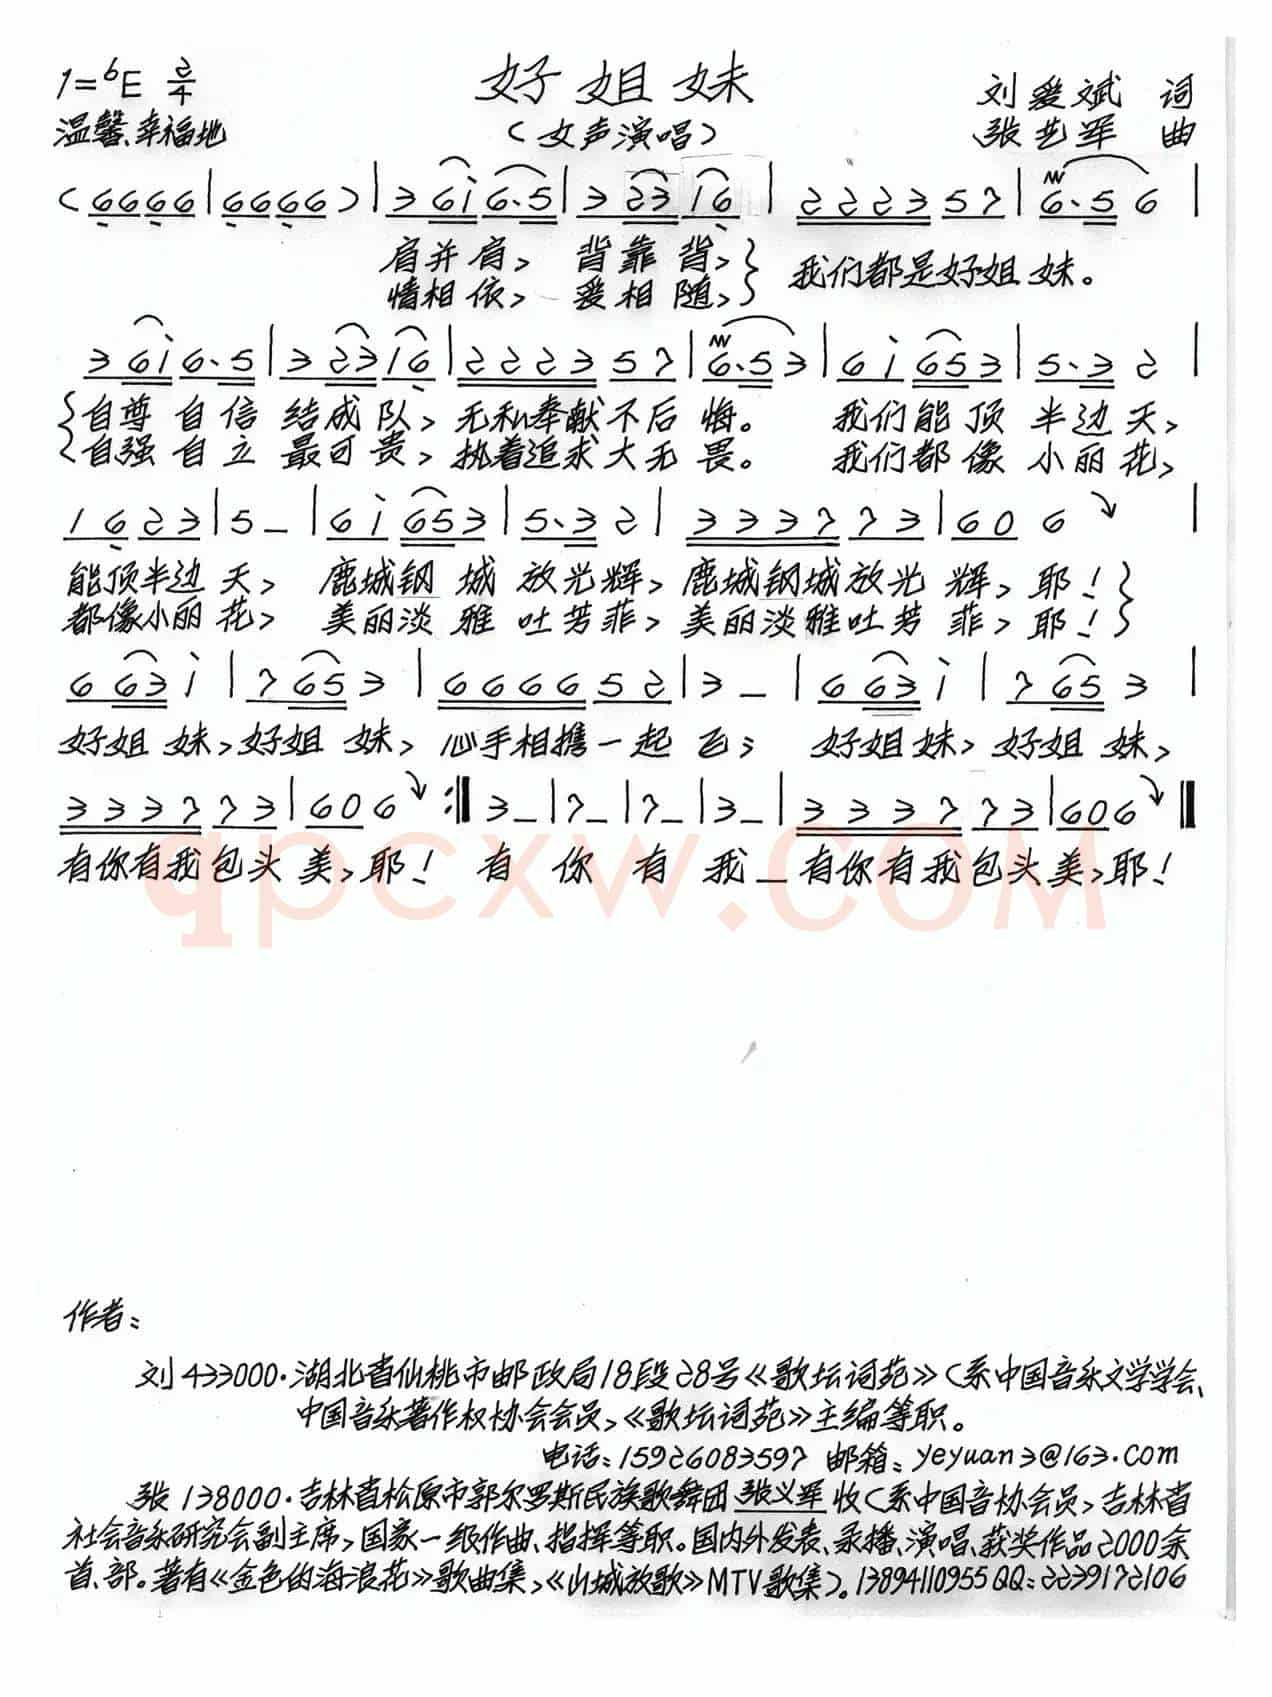 1=♭E 2/4 好姐妹 刘爱斌 词
温馨、幸福地 （女声演唱） 张艺军 曲
（6666|6666）|3 6i 6·5|3 23 16|2223 57|6·5 6|
肩并肩，背靠背，我们都是好姐妹。
情相依，爱相随，
3 6i 6·5|3 23 16|2223 57|6·5 3|6i 653|5·3 2|
自尊自信结成队，无私奉献不后悔。我们能顶半边天，
自强自立最可贵，执着追求大无畏。我们都像小丽花，
16 23|5 -|6i 653|5·3 2|3337 73|606|
能顶半边天，鹿城钢城放光辉，鹿城钢城放光辉，耶！
都像小丽花，美丽淡雅吐芳菲，美丽淡雅吐芳菲，耶！
6 63 i|7 65 3|6666 52|3 -|6 63 i|7 65 3|
好姐妹，好姐妹，心手相携一起飞；好姐妹，好姐妹，
3337 73|606:‖3 -|7 -|7 -|3 -|3337 73|606‖
有你有我包头美，耶！有你有我_有你有我包头美，耶！
qpcxw.com
作者：
刘 433000·湖北省仙桃市邮政局18段28号《歌坛词苑》（系中国音乐文学学会、
中国音乐著作权协会会员，《歌坛词苑》主编等职。
电话：15926083597 邮箱：yeyuan3@163.com
张 138000·吉林省松原市郭尔罗斯民族歌舞团张义军收（系中国音协会员，吉林省
社会音乐研究会副主席，国家一级作曲、指挥等职。国内外发表、录播、演唱、获奖作品2000余
首、部。著有《金色的海浪花》歌曲集，《山城放歌》MTV歌集）。13894110955 QQ：2239172106